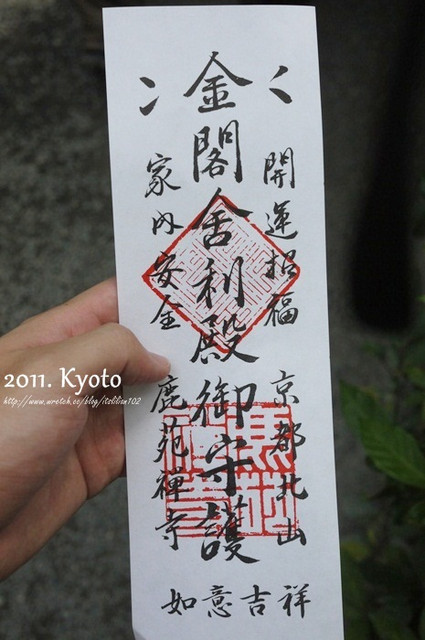 開運招福 京都北山
金閣舎利殿御守護
家内安全 鹿苑禅寺
如意吉祥
2011. Kyoto
http://www.wretch.cc/blog/itslilian102